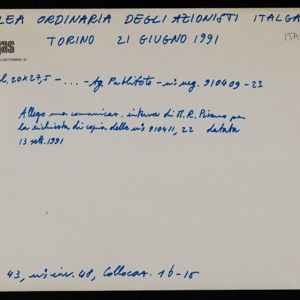 LEA ORDINARIA DEGLI AZIONISTI ITALGA
TORINO 21 GIUGNO 1991
ITA
gas
l. 20x27,5 - ... - Ag. Publifoto - n° neg. 910409-23
Allego una comunicaz. interna di M. R. Pisano per
la richiesta di copia delle n° 910411, 22 datata
13 sett. 1991
43, n° inv. 48, Collocaz. 16-15